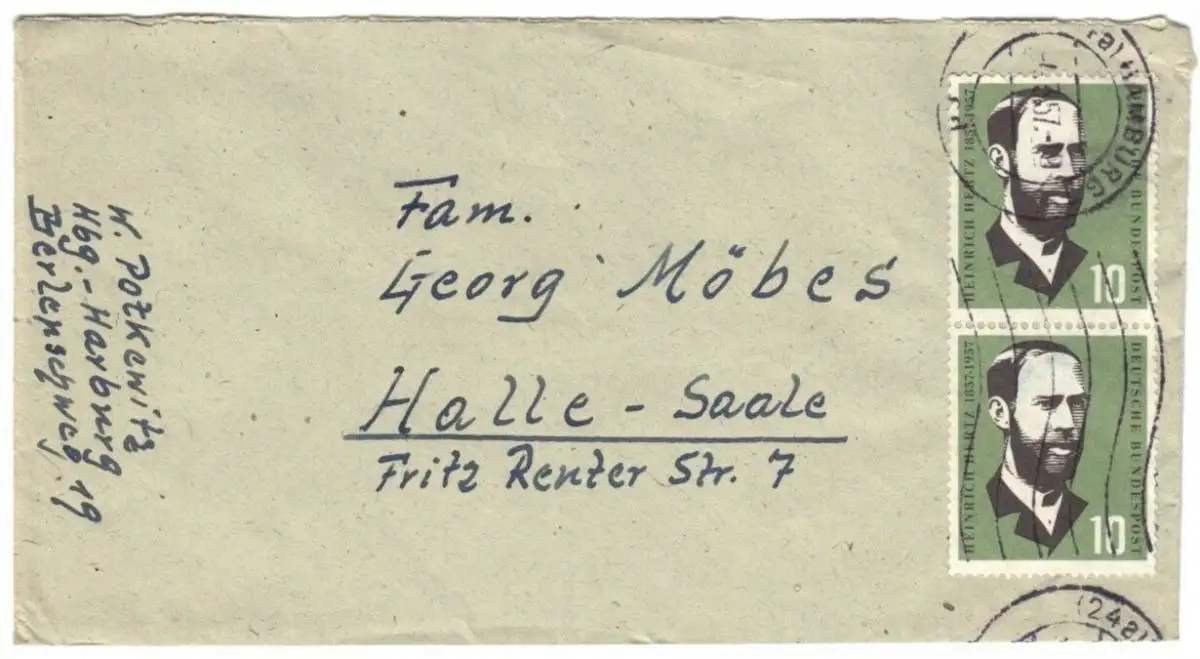 W. Potkewitz
Hbg.-Harburg
Berlenschweg. 19
Fam.
Georg Möbes
Halle - Saale
Fritz Reuter Str. 7
HAMBURG
.57.-
HEINRICH HERTZ 1857-1957
10
DEUTSCHE BUNDESPOST
HEINRICH HERTZ 1857-1957
10
DEUTSCHE BUNDESPOST
(24a)